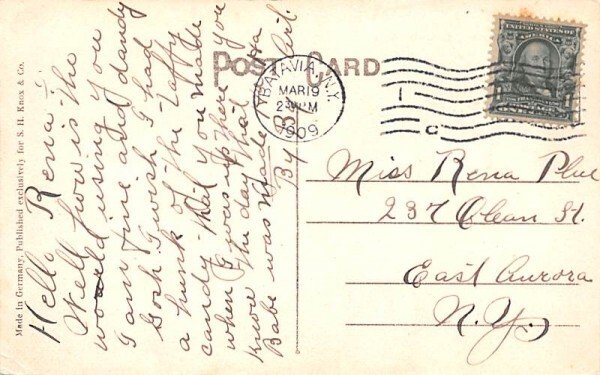 Made in Germany, Published exclusively for S. H. Knox & Co.
Hello Rena:
Well how is the
world using you
I am fine and dandy
Gosh I wish I had
a hunk of the taffy
candy that you made
when I was up there you
know the day that
Babe was made
By Girl.
POST CARD
BATAVIA, N.Y.
MAR 19
2 PM
1909
Miss Rena Plue
237 Olean St.
East Aurora
N. Y.